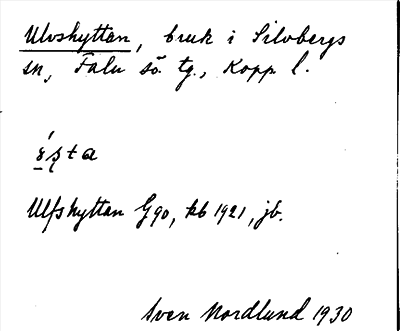 Ulvshyttan, bruk i Silvbergs
sn, Falu sö. tg., Kopp. l.
Ulfshyttan G90, kb 1921, jb.
Sven Nordlund 1930